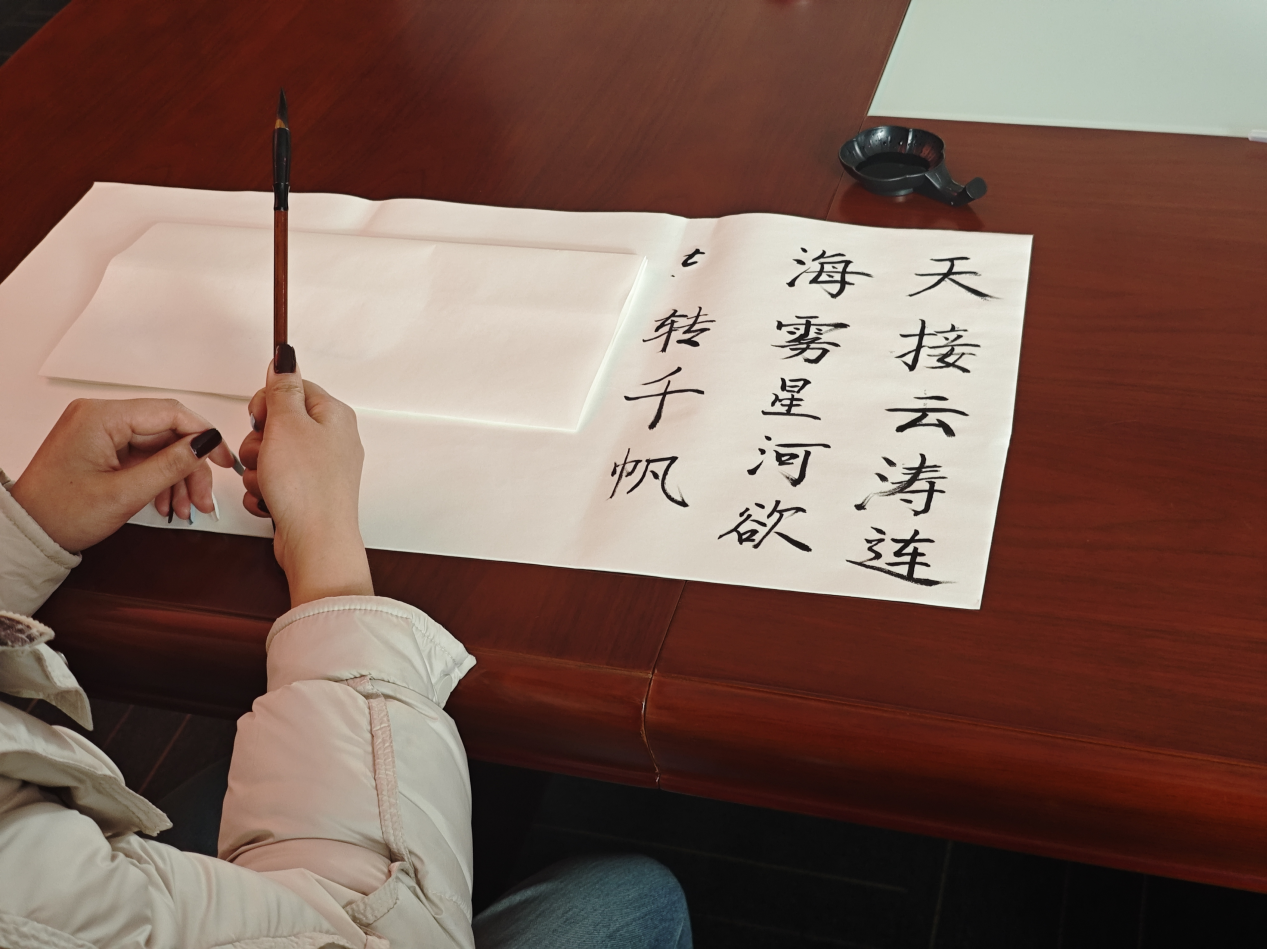 天接云涛连
海雾星河欲
转千帆